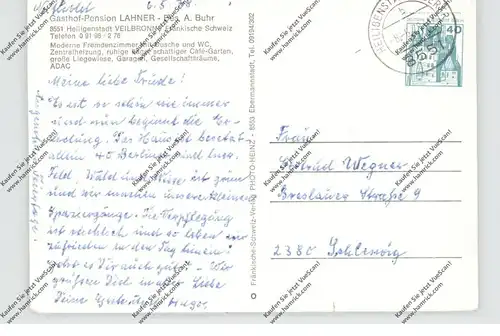 6. 5.
Gasthof-Pension LAHNER - Bes. A. Buhr
8551 Heiligenstadt VEILBRONN Fränkische Schweiz
Telefon 0 91 98 - 2 76
Moderne Fremdenzimmer mit Dusche und WC,
Zentralheizung, ruhige Lage, schattiger Café-Garten,
große Liegewiese, Garagen, Gesellschaftsräume,
ADAC
Meine liebe Friedel!
Es ist so schön wie immer
und nun beginnt die Er-
holung. Das Haus ist besetzt
allein 40 Berliner und
Wald ist grün
und wir machen unsere kleinen
Spaziergänge. Die Verpflegung
ist reichlich und so leben wir
zufrieden in den Tag hinein!
es Dir auch gut - Wir
grüßen Dich Liebe
Deine
Fränkische-Schweiz-Verlag PHOTO-HEINZ - 8553 Ebermannstadt, Tel. 09194/202
40
8551
Frau
Gertrud Wegner
Breslauer Straße 9
2380 Schleswig
Kaufen Sie jetzt VueScan!
www.hamrick.com